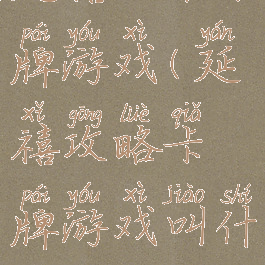 pái yóu xì yán
牌游戏(延
xǐ gōng lüè qiǎ
禧攻略卡
pái yóu xì jiào shí
牌游戏叫什